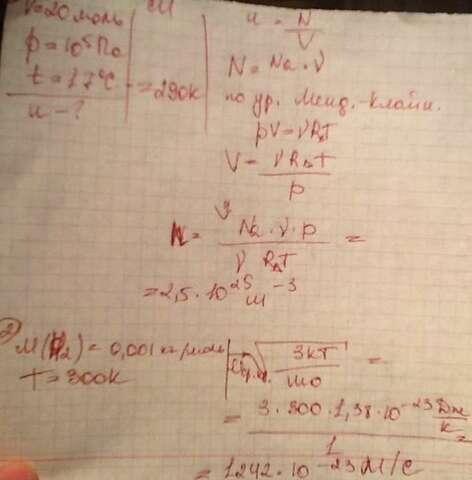 ν=20 моль
СИ
p = 10⁵ Па
t = 17°C
=290K
n - ?
n = N/V
N = Na · ν
по ур. Менд.-Клайп.
pV = νRT
V = νRT/p
n = Na · ν · p / ν RT =
= 2,5 · 10²⁵ м⁻³
② M(H₂) = 0,001 кг/моль
T = 300K
√3kT/m₀ =
= 3 · 300 · 1,38 · 10⁻²³ Дж/К / 1 =
= 1242 · 10⁻²³ м/с